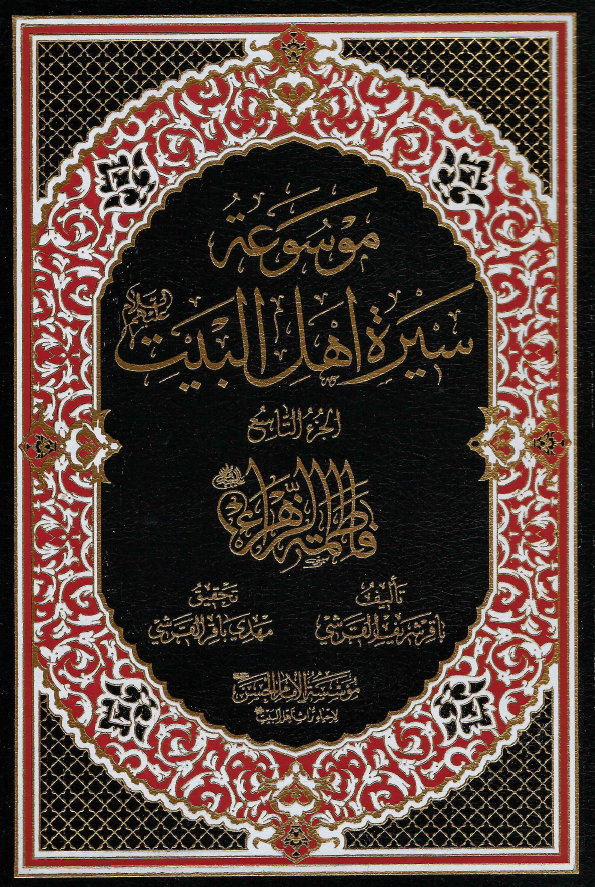 موسوعة
سيرة أهل البيت عليهم السلام
الجزء التاسع
فاطمة الزهراء
تأليف
باقر شريف القرشي
تحقيق
مهدي باقر القرشي
مؤسسة الإمام الحسن
لإحياء تراث أهل البيت